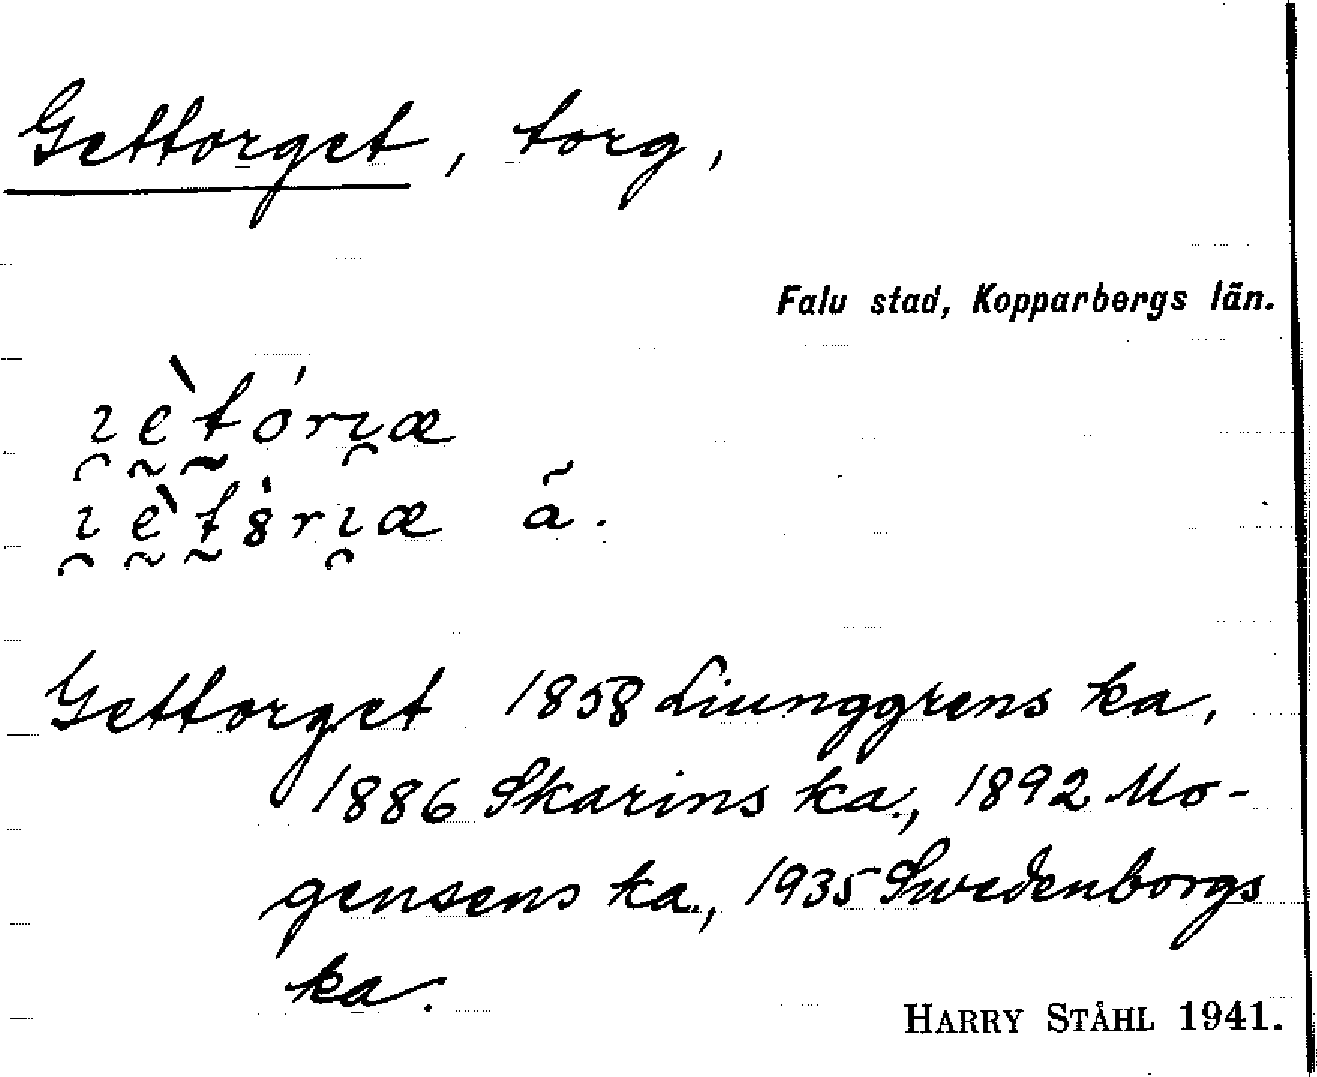 Gettorget, torg,
Falu stad, Kopparbergs län.
Gettorget 1858 Liunggrens ka,
1886 Skarins ka., 1892 Mo-
gensens ka., 1935 Swedenborgs
ka.
HARRY STÅHL 1941.